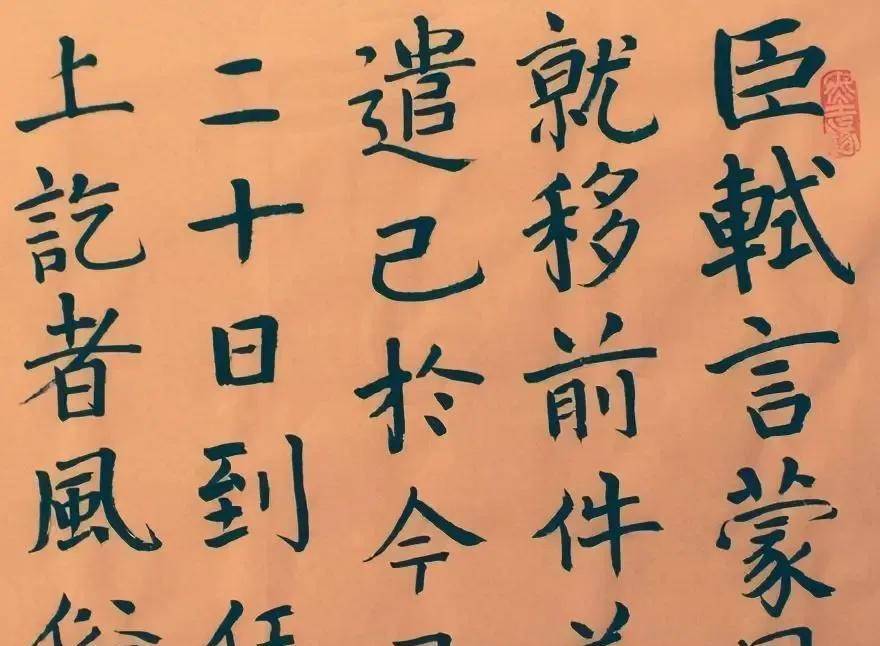 臣軾言蒙
就移前件
遣已於今
二十日到任
上訖者風俗